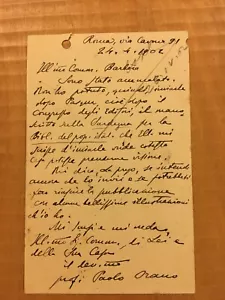 Roma, via Cavour 91
24.4.1902
Ill.mo Comm. Barbèra
Sono stato ammalato.
Non ho potuto, quindi, inviarle
dopo Pasqua, cioè dopo il
congresso degli editori, il mano
scritto sulla Sardegna per la
Bibl. del pop. ital. che Ella mi
di inviarle onde codesta
possa prenderne visione.
Mi dica, la prego, se intende
ancora che lo invii e se potrebbesi
far la pubblicazione
con alcune bellissime illustrazioni
ch'io ho.
Mi e mi creda,
Ill.mo Comm. di Lei e
della Sua Casa
il dev.mo
prof. Paolo Orano